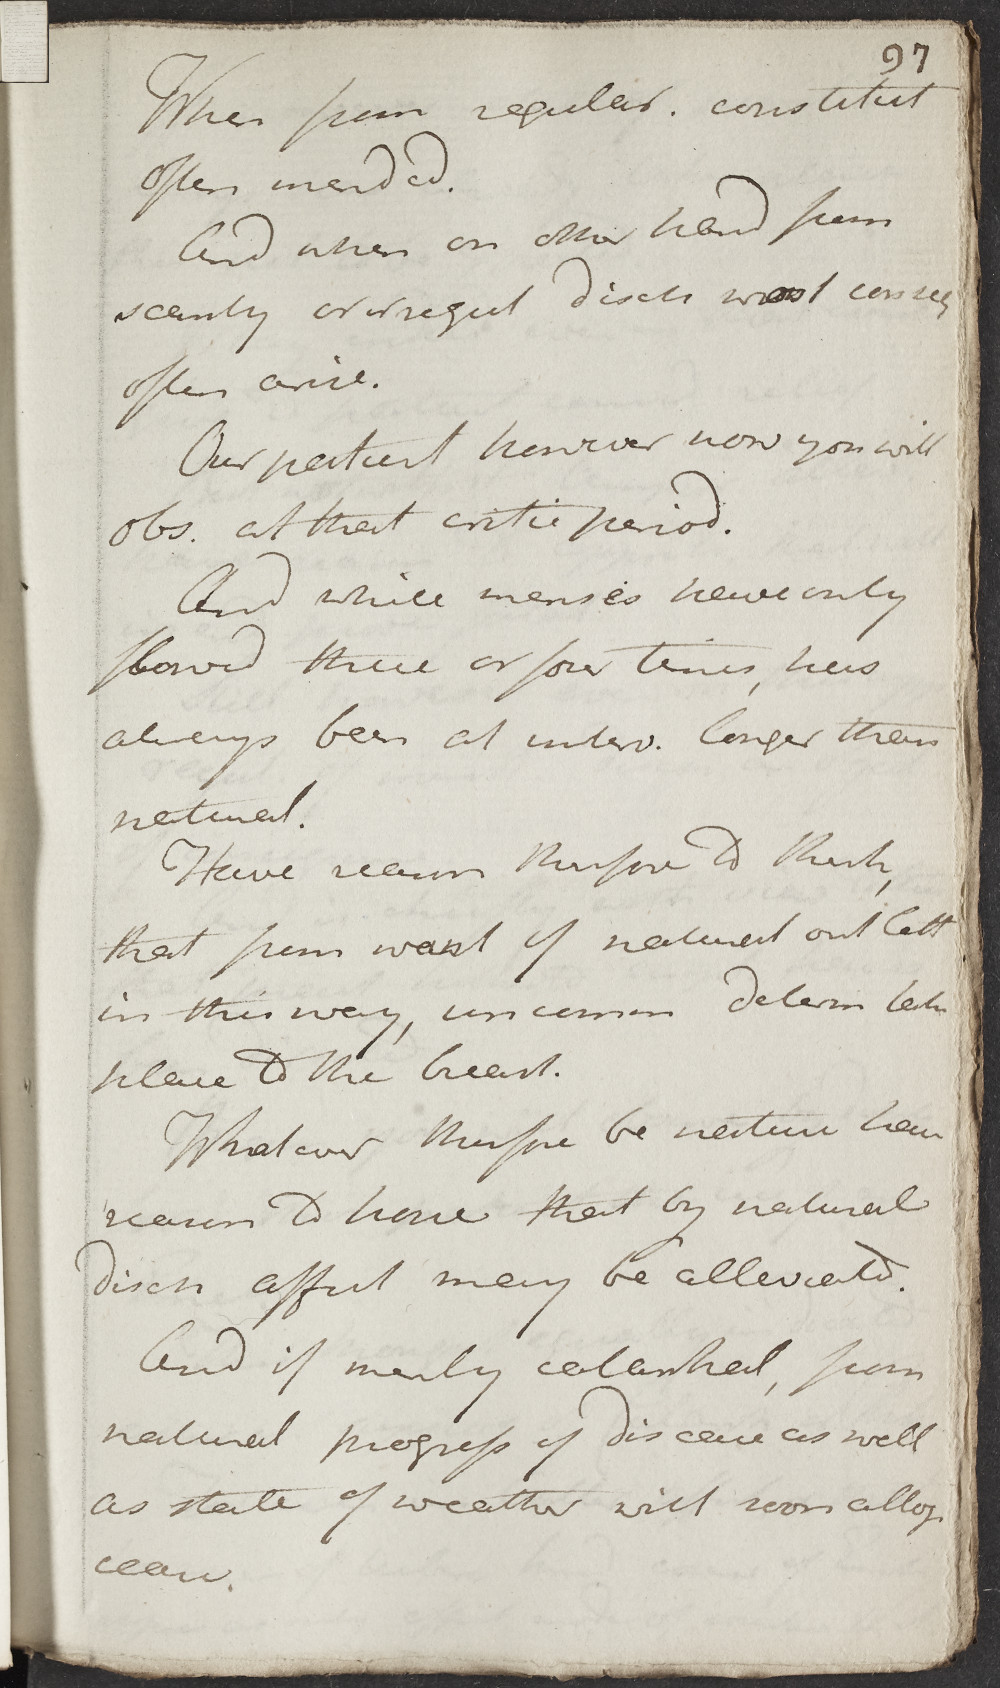 97
When from regular. constitut
often mended.
And when on other hand from
scanty or irregul disch worst conseq
often arise.
Our patient however now you will
obs. at that critic period.
And while menses have only
flowed three or four times, has
always been at interv. longer than
natural.
Have reason therefore to think,
that from want of natural out lett
in this way, uncommon determ take
place to the breast.
Whatever therefore be nature have
reason to hope that by natural
disch affect may be alleviated.
And if merely catarrhal, from
natural progress of disease as well
as state of weather will soon altog
cease.